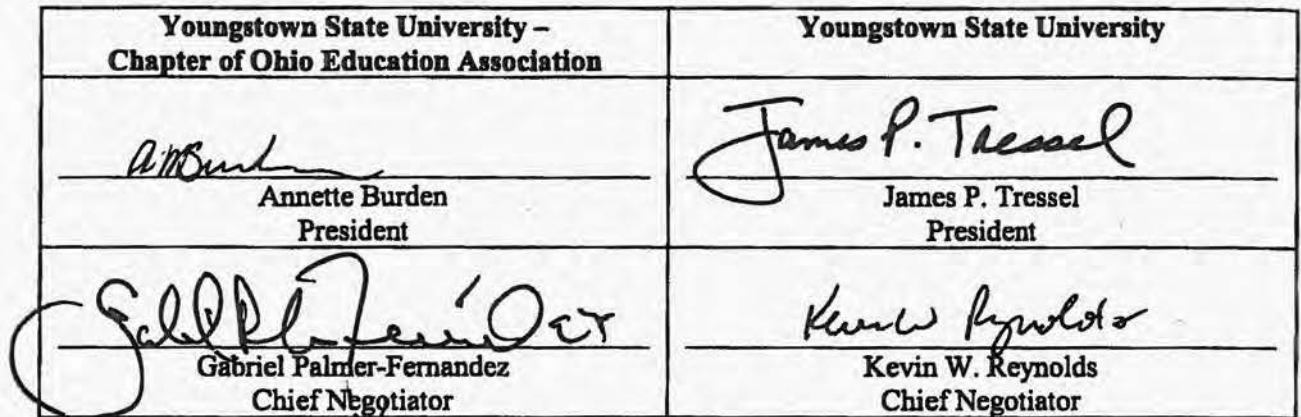 Youngstown State University –
Chapter of Ohio Education Association
Youngstown State University
James P. Tressel
Annette Burden
President
James P. Tressel
President
Kevin W Reynolds
Gabriel Palmer-Fernandez
Chief Negotiator
Kevin W. Reynolds
Chief Negotiator